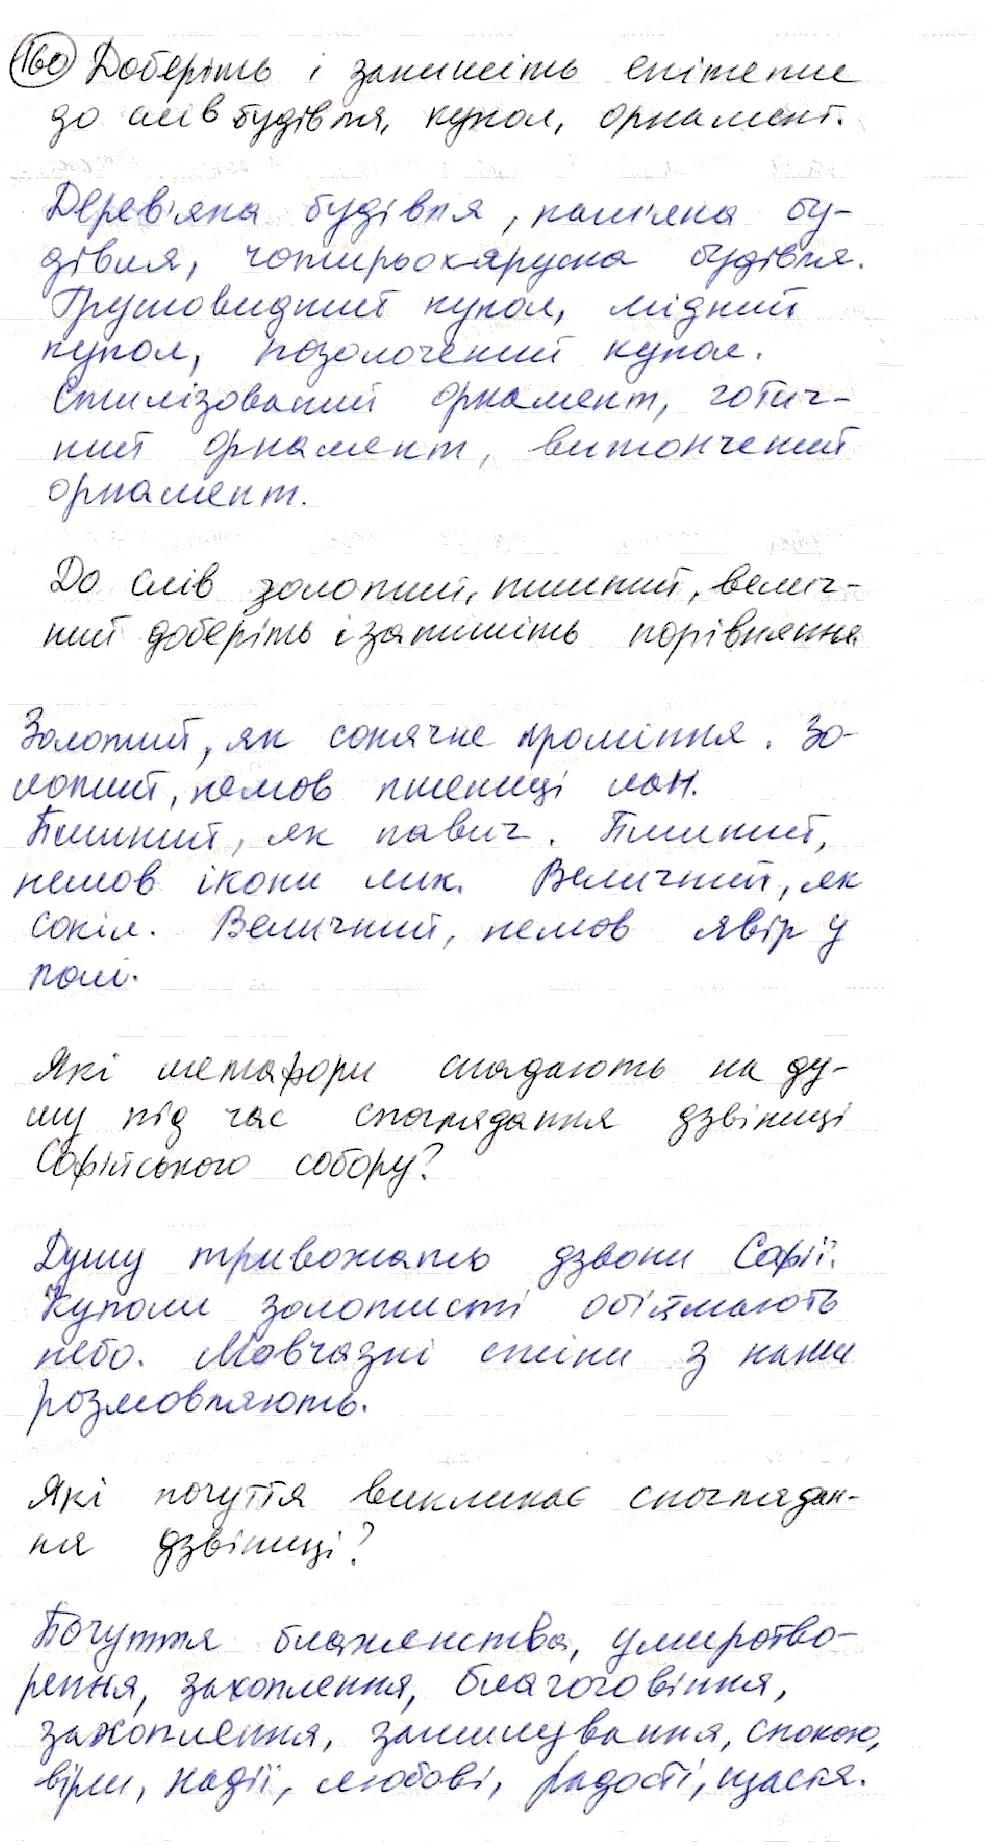 160 Доберіть і запишіть епітети
до слів будівля, купол, орнамент.
Дерев'яна будівля, кам'яна бу-
дівля, чотирьохярусна будівля.
Грушовидний купол, мідний
купол, позолочений купол.
Стилізований орнамент, готич-
ний орнамент, витончений
орнамент.
До слів золотий, пишний, велич-
ний доберіть і запишіть порівняння
Золотий, як сонячне проміння. Зо-
лотий, немов пшениці лан.
Пишний, як павич. Пишний,
немов ікони лик. Величний, як
сокіл. Величний, немов явір у
полі.
Які метафори спадають на ду-
му під час споглядання дзвіниці
Софійського собору?
Душу тривожать дзвони Софії.
Куполи золотисті обіймають
небо. Мовчазні стіни з нами
розмовляють.
Які почуття викликає споглядан-
ня дзвіниці?
Почуття блаженства, умиротво-
рення, захоплення, благоговіння,
захоплення, замилування, спокою,
віри, надії, любові, радості, щастя.